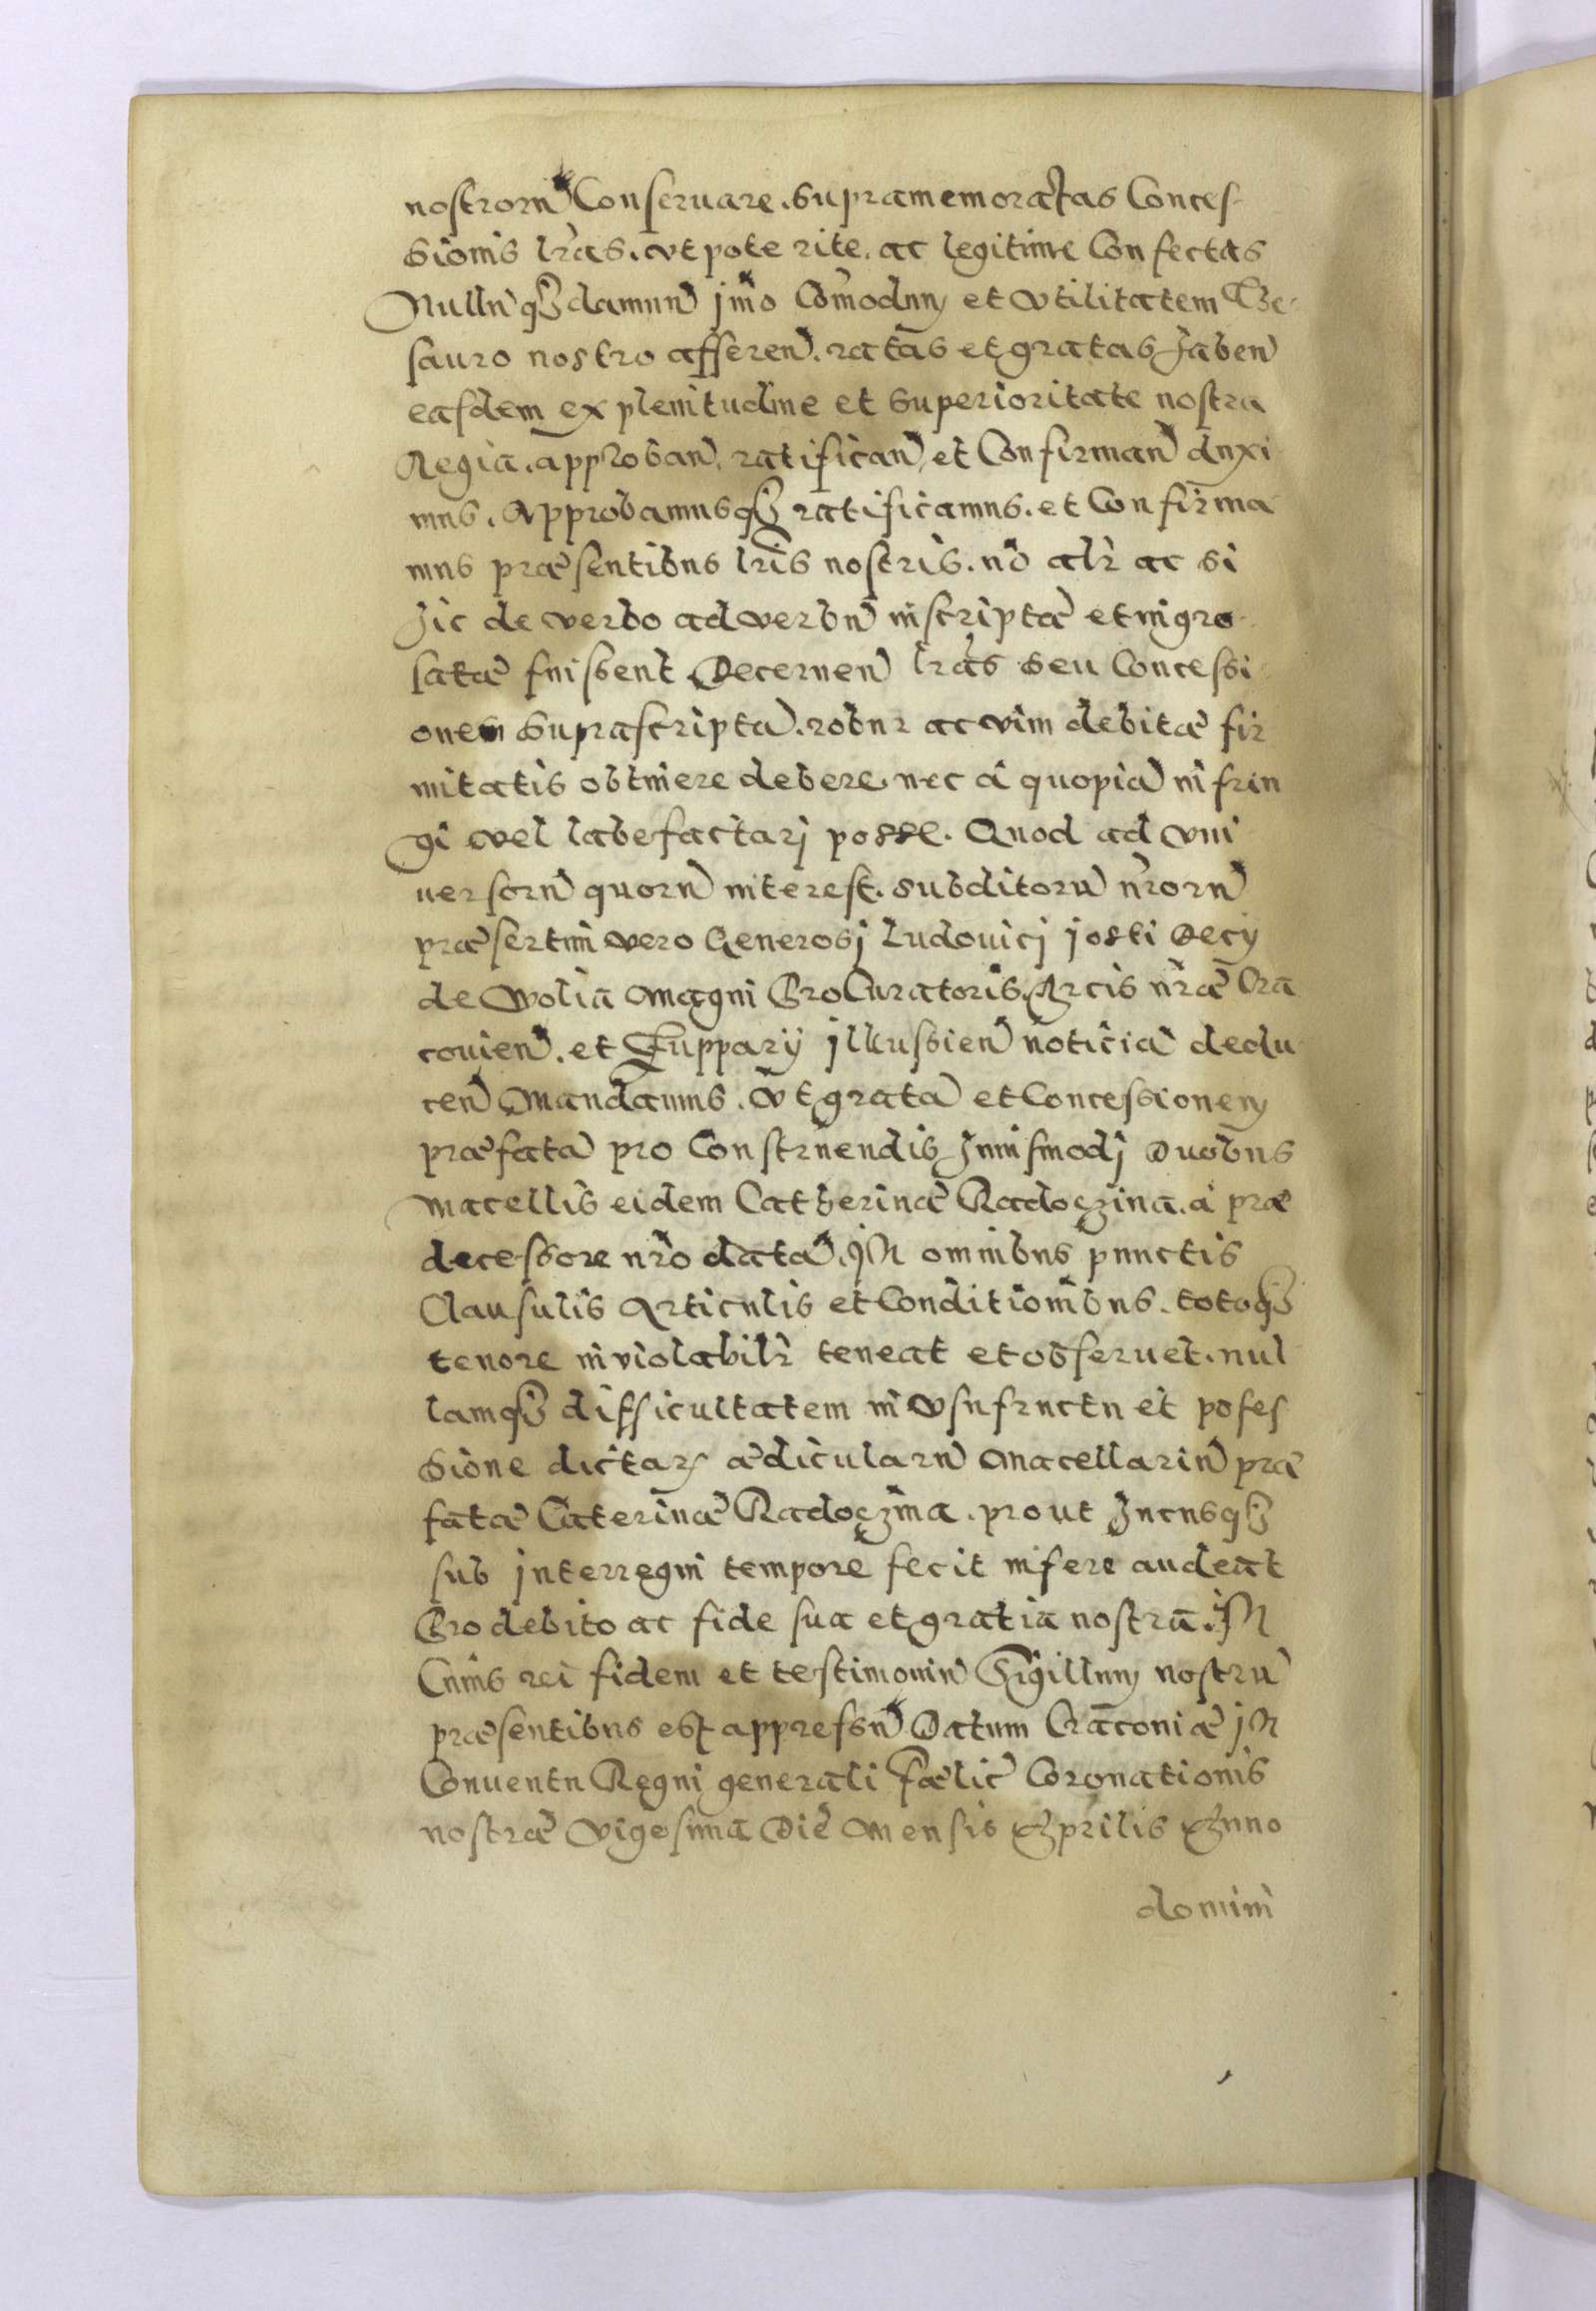 nostrorũ Conseruare. Supramemoratas Conces-
sionis lr̃as. vt pote rite. ac legitime Confectas
Nullũq3 damnũ jm̃o Com̃odum et vtilitatem The-
sauro nostro afferen̄. ratas et gratas haben̄
easdem ex plenitudine et superioritate nostra
Regia. approban̄. ratifican̄. et Confirman̄ duxi
mus. Approbamusq3 ratificamus. et Confirma
mus præsentibus lr̃is nostris. nõ alr̃ ac si
hic de verbo ad verbũ inscriptæ et ingro-
satæ fuissent Decernen̄ lr̃as seu Concessi
onem suprascriptã. robur ac vim debitæ fir
mitatis obtinere debere. nec a quopiã infrin
gi vel labefactarj posse. Quod ad vni
uersorũ quorũ interest. subditorũ nr̃orũ
præsertim vero Generosj Ludouicj josti Decij
de Wolia Magni ProCuratoris. Arcis nr̃æ Cra
couien̄. et Zupparij jlkussien̄ noticiã dedu
cen̄ Mandamus. vt gratã et Concessionem
præfatã pro Construendis huiusmodj Duobus
macellis eidem Catherinæ Radoczina. a præ
decessore nr̃o datã. jN omnibus punctis
Clausulis Articulis et Conditionibus. totoq3
tenore inviolabilr̃ teneat et obseruet. nul
lamq3 difficultatem in vsufructu et poses
sione dictar̃ ædicularũ Macellariũ præ
fatæ Caterinæ Radoczina. prout hucusq3
sub jnterregni tempore fecit inferre audeat
Pro debito ac fide sua et gratia nostra. jN
Cuius rei fidem et testimoniũ Sigillum nostrũ
præsentibus est appressũ Datum Cracouiæ jN
Conuentu Regni generali Fælic̄ Coronationis
nostræ vigesima Die Mensis Aprilis Anno
domini